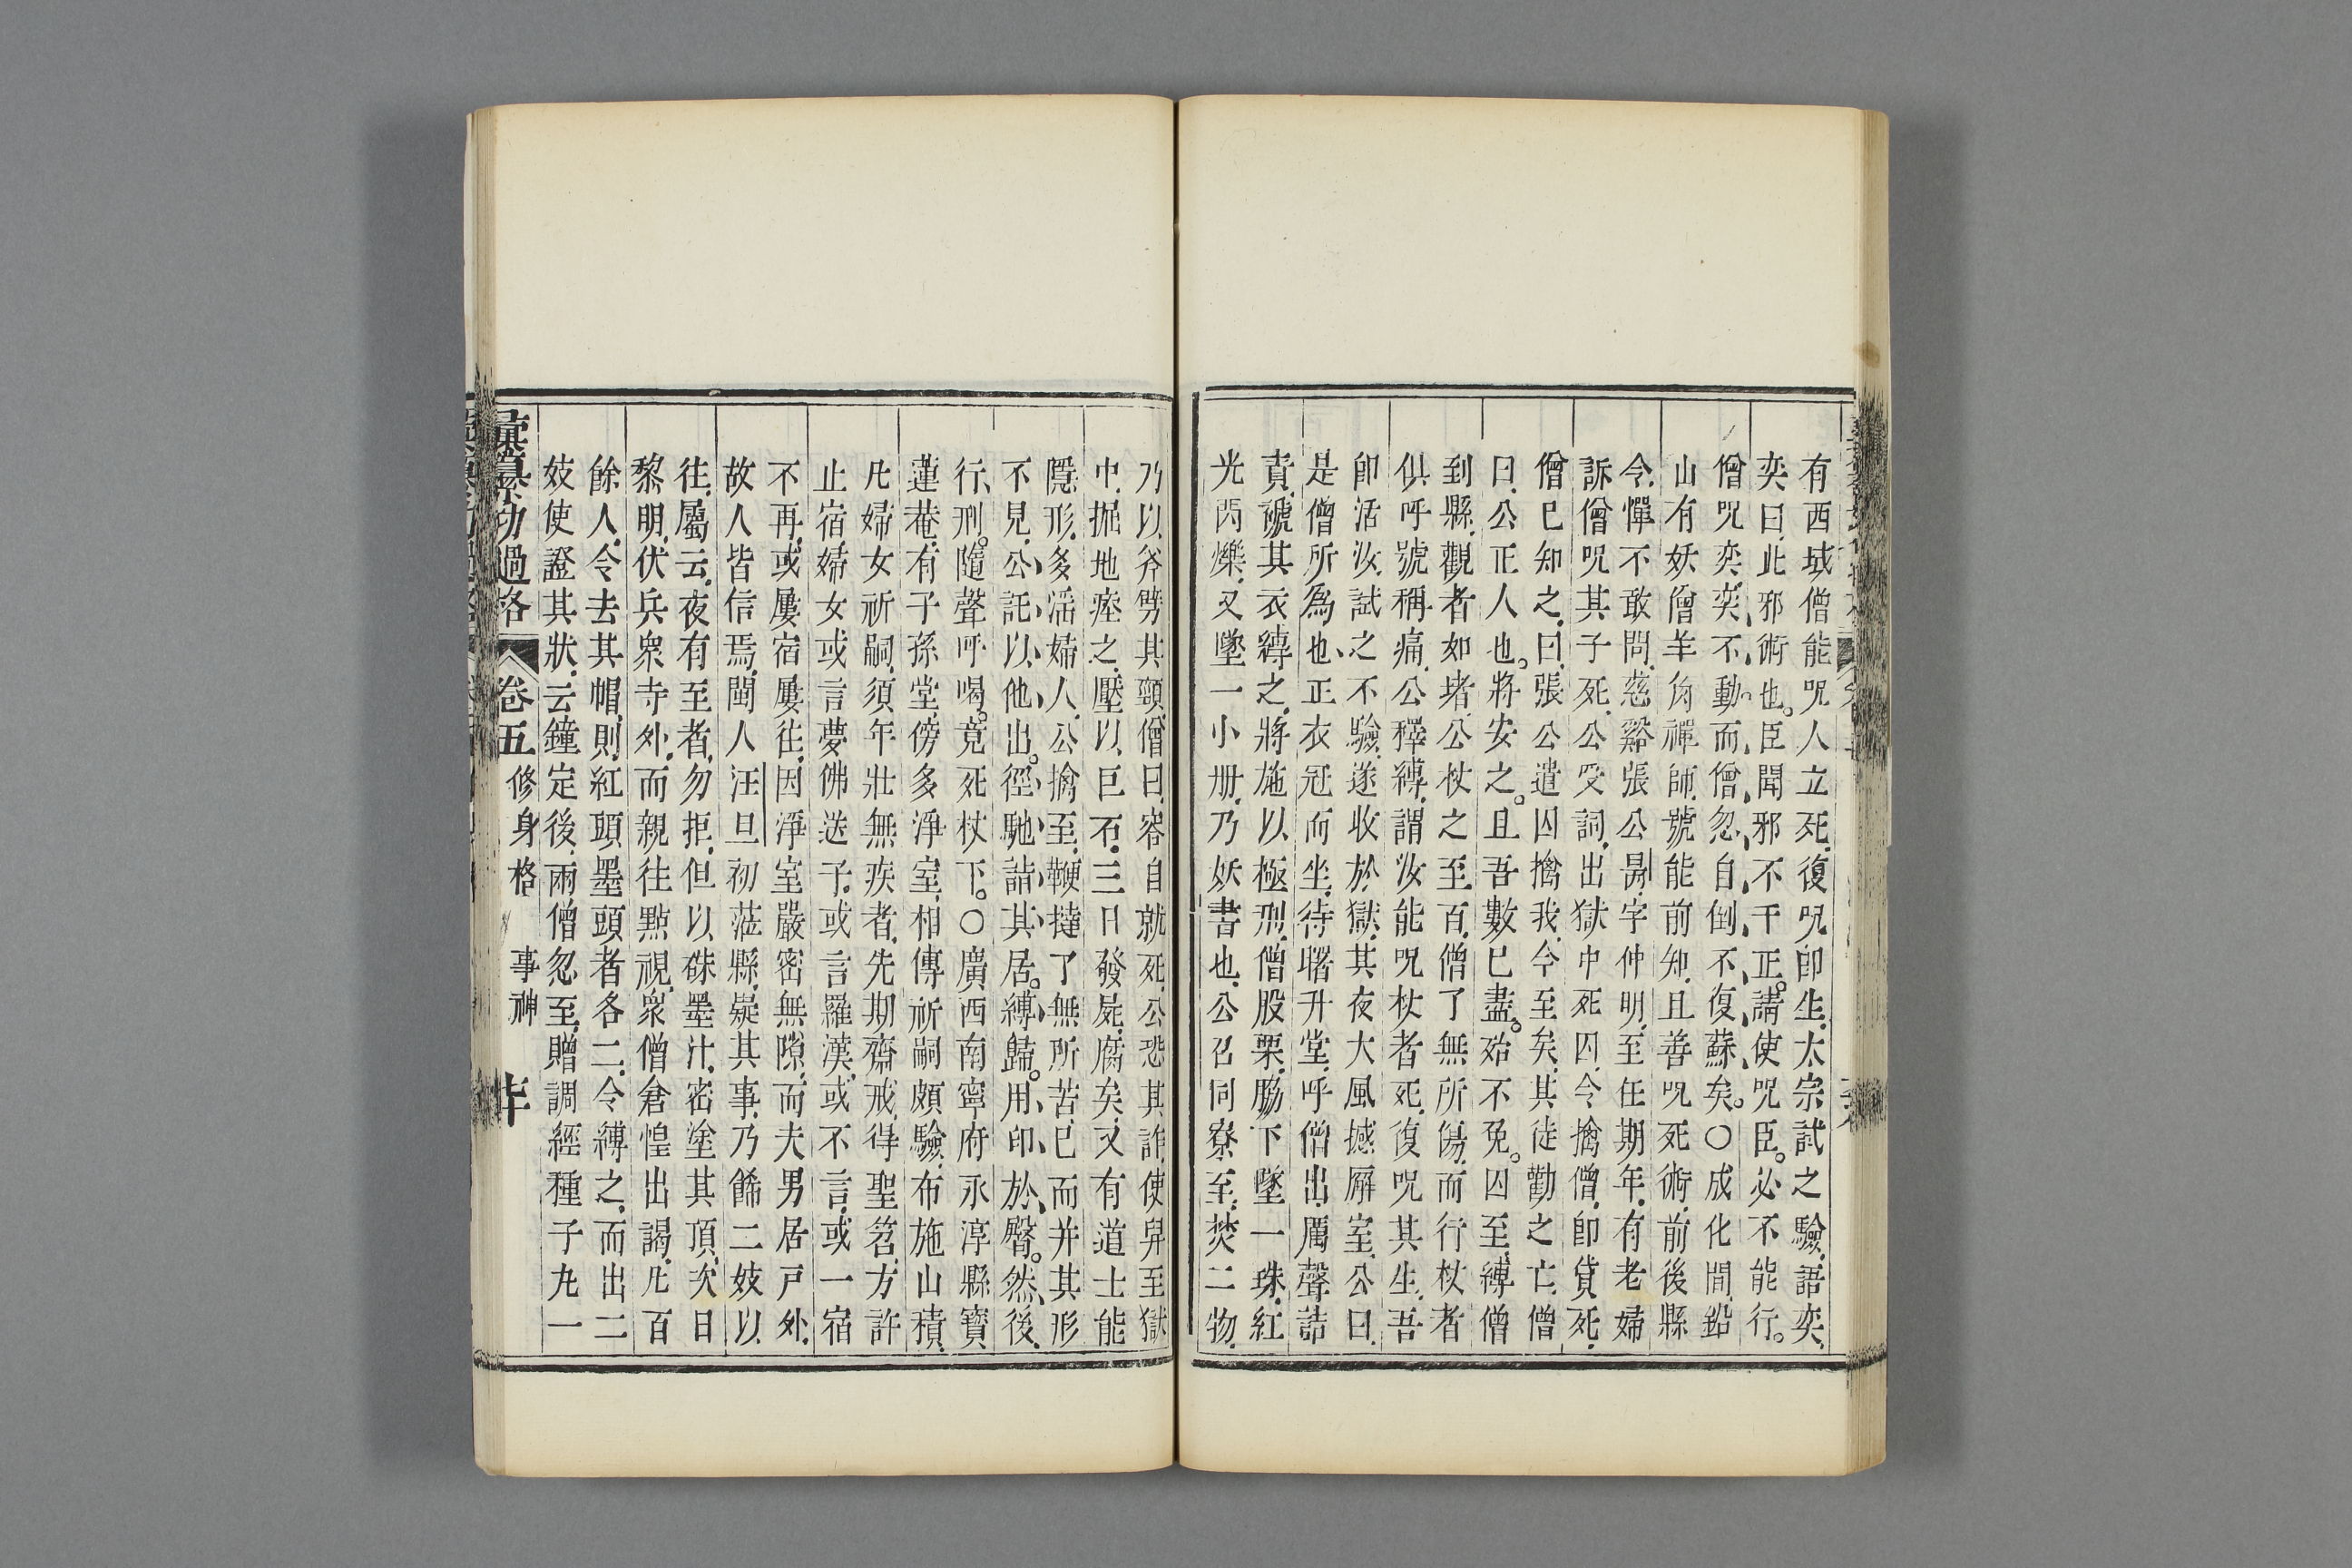 有西域僧能咒人立死復咒卽生太宗試之驗語奕
奕曰此邪術也臣聞邪不干正請使咒臣必不能行
僧咒奕奕不動而僧忽自倒不復蘇矣○成化間鉛
山有妖僧羊角禪師號能前知且善咒死術前後縣
令憚不敢問慈谿張公昺字仲明至任期年有老婦
訴僧咒其子死公受詞出獄中死囚令擒僧卽貸死
僧已知之曰張公遣囚擒我今至矣其徒勸之亡僧
曰公正人也將安之且吾數已盡殆不免囚至縛僧
到縣觀者如堵公杖之至百僧了無所傷而行杖者
俱呼號稱痛公釋縛謂汝能咒杖者死復咒其生吾
卽活汝試之不驗遂收於獄其夜大風撼屛室公曰
是僧所爲也正衣冠而坐待曙升堂呼僧出厲聲詰
責褫其衣縛之將施以極刑僧股栗脇下墜一珠紅
光丙爍又墜一小冊乃妖書也公召同寮至焚二物
乃以斧劈其頸僧曰容自就死公恐其詐使舁至獄
中掘地瘞之壓以巨石三日發屍腐矣又有道士能
隱形多淫婦人公擒至鞭撻了無所苦已而并其形
不見公託以他出徑馳詣其居縛歸用印於臀然後
行刑隨聲呼喝竟死杖下○廣西南寧府永淳縣寶
蓮菴有子孫堂傍多淨室相傳祈嗣頗驗布施山積
凡婦女祈嗣須年壯無疾者先期齋戒得聖笤方許
止宿婦女或言夢佛送子或言羅漢或不言或一宿
不再或屢宿屢往因淨室嚴密無隙而夫男居戸外
故人皆信焉閩人汪旦初蒞縣疑其事乃餙二妓以
往屬云夜有至者勿拒但以硃墨汁密塗其頂次日
黎明伏兵衆寺外而親往點視衆僧倉惶出謁凡百
餘人令去其帽則紅頭墨頭者各二令縛之而出二
妓使證其狀云鐘定後兩僧忽至贈調經種子丸一
彙纂功過格 卷五 修身格 事神